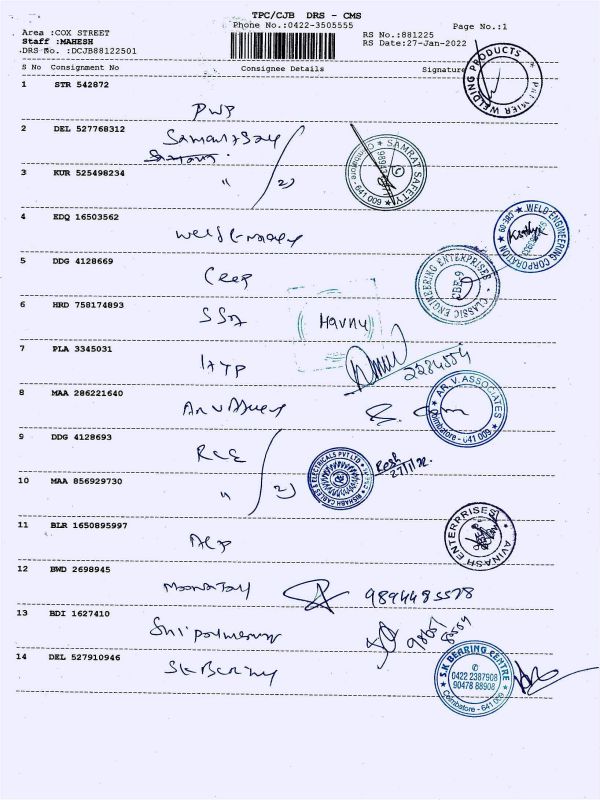 TPC/CJB DRS - CMS
Phone No.:0422-3505555
Page No.:1
Area :COX STREET
Staff :MAHESH
DRS No. :DCJB88122501
RS No.:881225
RS Date:27-Jan-2022
S No Consignment No Consignee Details Signature
PREMIER WELDING PRODUCTS
1 STR 542872
PWP
2 DEL 527768312
SAMRAT SAFETY
Coimbatore - 641 009
3 KUR 525498234
" 2)
4 EDQ 16503562
WELD ENGINEERING CORPORATION
5 DDG 4128669
CLASSIC ENGINEERING ENTERPRISES
CBE-9
6 HRD 758174893
SSA
Havny
7 PLA 3345031
2284554
8 MAA 286221640
AR.V. ASSOCIATES
Coimbatore - 641 009
9 DDG 4128693
RCE
RISHABH CABLES & ELECTRICALS PVT LTD
27/1/22
10 MAA 856929730
" 2)
11 BLR 1650895997
AVINASH ENTERPRISES
12 BWD 2698945
9894485578
13 BDI 1627410
14 DEL 527910946
S.K BEARING CENTRE
0422 2387908
90478 88908
Coimbatore - 641 009